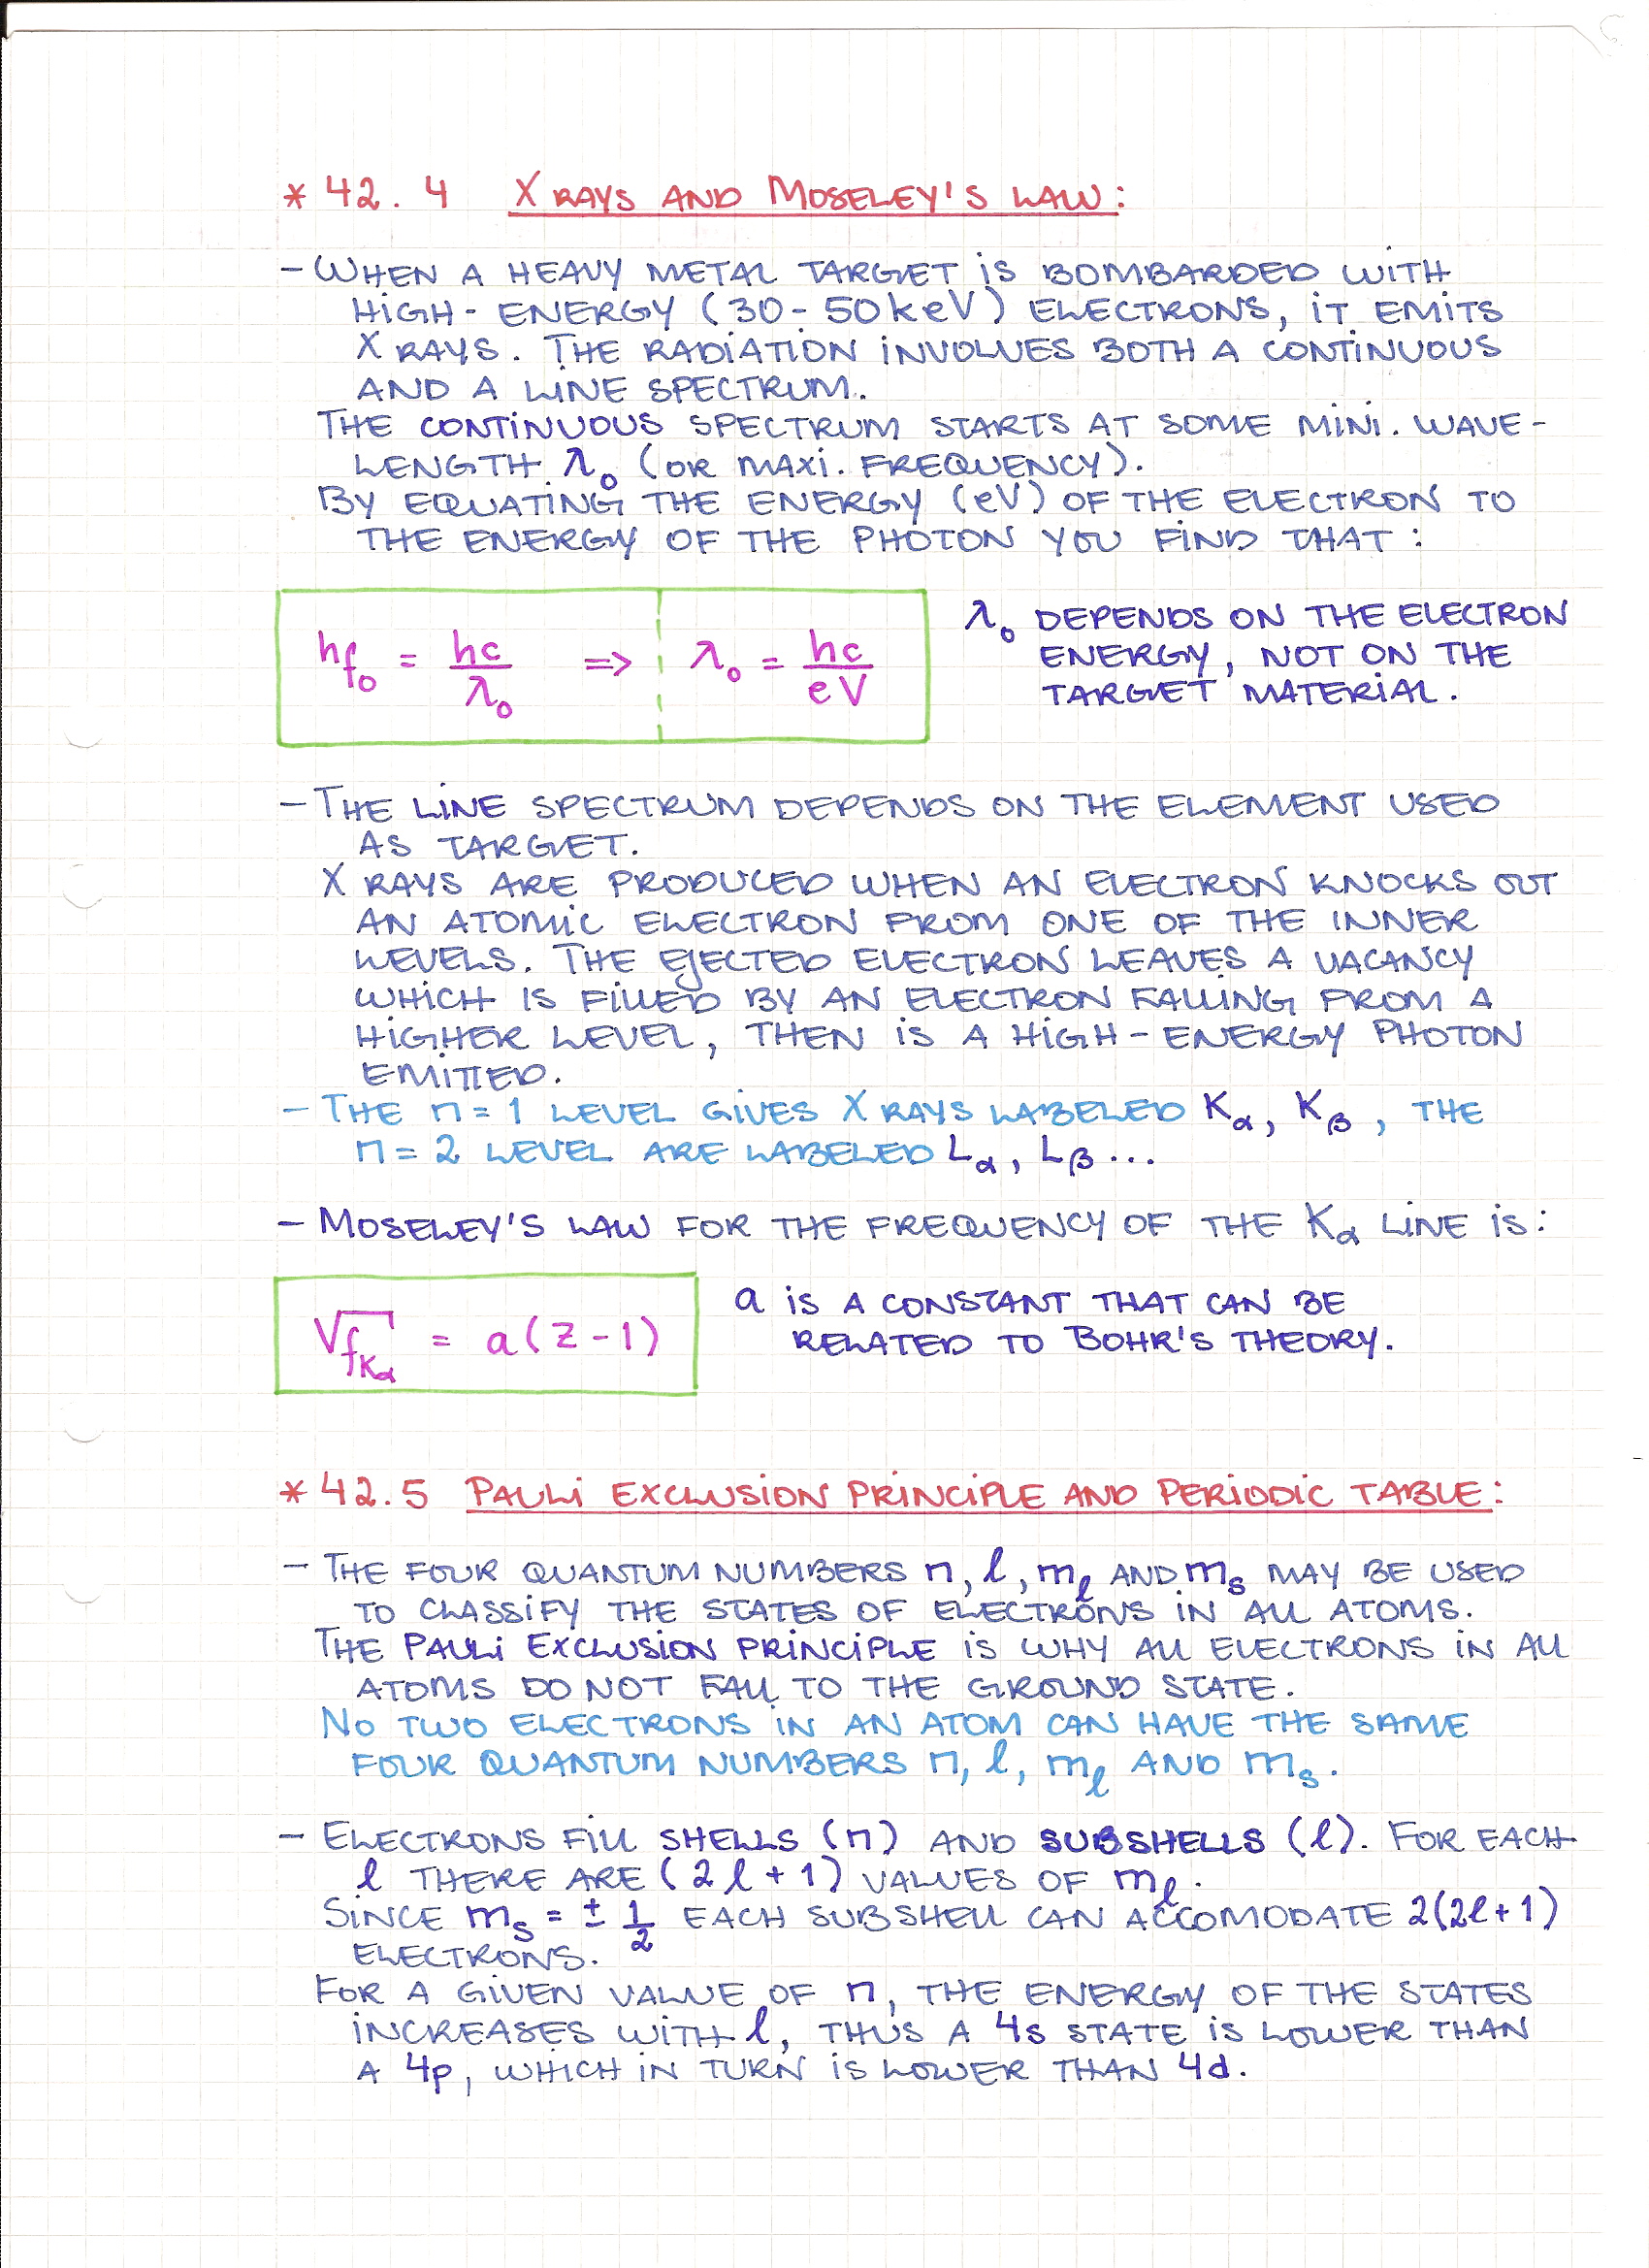 * 42.4 X RAYS AND MOSELEY'S LAW:
- WHEN A HEAVY METAL TARGET IS BOMBARDED WITH
HIGH-ENERGY (30-50keV) ELECTRONS, IT EMITS
X RAYS. THE RADIATION INVOLVES BOTH A CONTINUOUS
AND A LINE SPECTRUM.
THE CONTINUOUS SPECTRUM STARTS AT SOME MINI. WAVE-
LENGTH λ₀ (OR MAXI. FREQUENCY).
BY EQUATING THE ENERGY (eV) OF THE ELECTRON TO
THE ENERGY OF THE PHOTON YOU FIND THAT:
hf₀ = hc/λ₀ => λ₀ = hc/eV
λ₀ DEPENDS ON THE ELECTRON
ENERGY, NOT ON THE
TARGET MATERIAL.
- THE LINE SPECTRUM DEPENDS ON THE ELEMENT USED
AS TARGET.
X RAYS ARE PRODUCED WHEN AN ELECTRON KNOCKS OUT
AN ATOMIC ELECTRON FROM ONE OF THE INNER
LEVELS. THE EJECTED ELECTRON LEAVES A VACANCY
WHICH IS FILLED BY AN ELECTRON FALLING FROM A
HIGHER LEVEL, THEN IS A HIGH-ENERGY PHOTON
EMITTED.
- THE n = 1 LEVEL GIVES X RAYS LABELED Kα, Kβ, THE
n = 2 LEVEL ARE LABELED Lα, Lβ...
- MOSELEY'S LAW FOR THE FREQUENCY OF THE Kα LINE IS:
√f_Kα = a(Z-1)
a IS A CONSTANT THAT CAN BE
RELATED TO BOHR'S THEORY.
* 42.5 PAULI EXCLUSION PRINCIPLE AND PERIODIC TABLE:
- THE FOUR QUANTUM NUMBERS n, l, m_l AND m_s MAY BE USED
TO CLASSIFY THE STATES OF ELECTRONS IN ALL ATOMS.
THE PAULI EXCLUSION PRINCIPLE IS WHY ALL ELECTRONS IN ALL
ATOMS DO NOT FALL TO THE GROUND STATE.
NO TWO ELECTRONS IN AN ATOM CAN HAVE THE SAME
FOUR QUANTUM NUMBERS n, l, m_l AND m_s.
- ELECTRONS FILL SHELLS (n) AND SUBSHELLS (l). FOR EACH
l THERE ARE (2l+1) VALUES OF m_l.
SINCE m_s = ± 1/2 EACH SUBSHELL CAN ACCOMODATE 2(2l+1)
ELECTRONS.
FOR A GIVEN VALUE OF n, THE ENERGY OF THE STATES
INCREASES WITH l, THUS A 4s STATE IS LOWER THAN
A 4p, WHICH IN TURN IS LOWER THAN 4d.